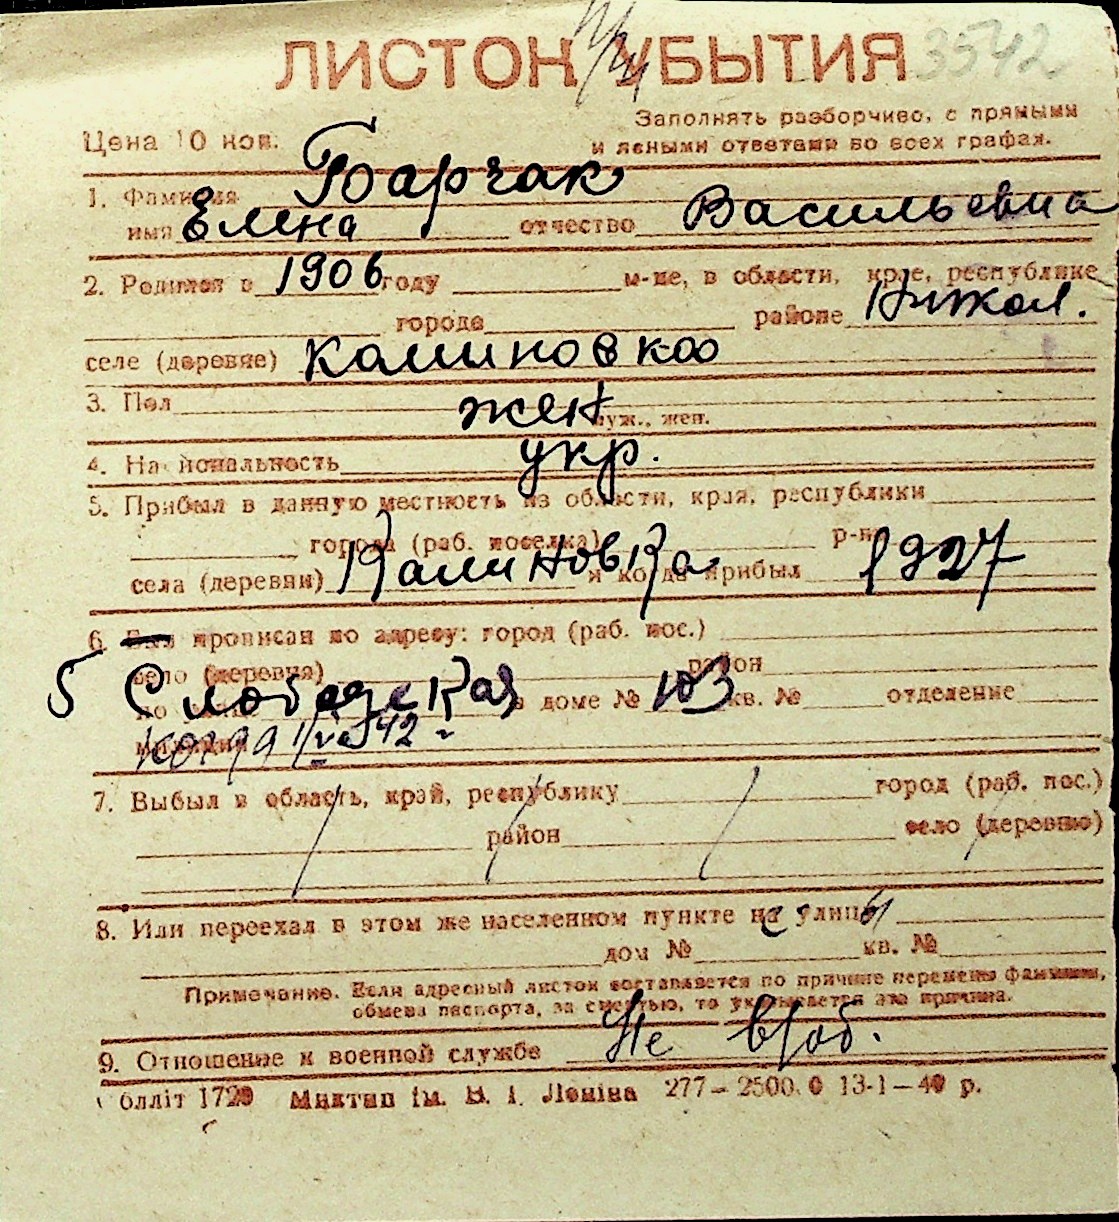 3542
ЛИСТОК УБЫТИЯ
Цена 10 коп.
Заполнять разборчиво, с прямыми
и ясными ответами во всех графах.
1. Фамилия Барчак
имя Елена отчество Васильевна
2. Родился в 1906 году м-це, в области, крае, республике
города районе Никол.
селе (деревне) Калиновка
3. Пол жен
муж., жен.
4. Национальность укр.
5. Прибыл в данную местность из области, края, республики
города (раб. поселка) р-н
села (деревни) Калиновка и когда прибыл 1927
6. Был прописан по адресу: город (раб. пос.)
село (деревня) район
5 Слободская в доме № 103 кв. № отделение
милиции когда 42
7. Выбыл в область, край, республику город (раб. пос.)
район село (деревню)
8. Или переехал в этом же населенном пункте на улицы
дом № кв. №
Примечание. Если адресный листок составляется по причине перемены фамилии,
обмена паспорта, за смертью, то указывается эта причина.
9. Отношение к военной службе Не в/об.
Облліт 1729 Миктип ім. В. І. Леніна 277—2500. 0 13-1—40 р.